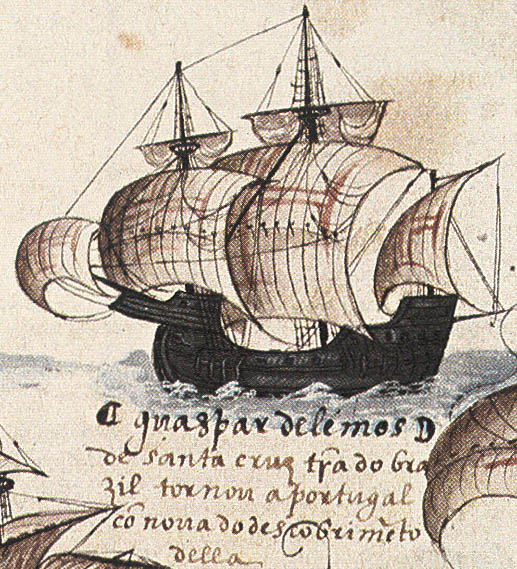 guaspar de lemos
de santa cruz tr̃a do bra
zil tornou a portugal
cõ nova do descobrimẽto
della